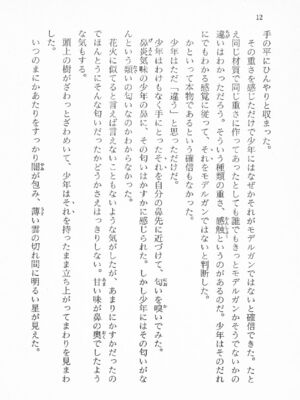 12
手の平にひんやりと収まった。
その重さを感じただけで少年にはなぜかそれがモデルガンでないと確信できた。たと
え同じ材質で同じ重さに作ってあったとしても誰でもきっとモデルガンかそうでないかの
違いはわかっただろう。そういう種類の重さ、感触というのがあるのだ。少年はそのだれ
にでもわかる感覚に従って、それをモデルガンではないと判断した。
かといって本物であるという確信もなかった。
少年はただ「違う」と思っただけだ。
少年はわけもなく手にとったそれを自分の鼻先に近づけて、匂いを嗅いでみた。
鼻炎気味の少年の鼻に、その匂いはかすかに感じられた。しかし少年にはその匂いがな
んという類いの匂いなのかわからなかった。
花火に似てると言えば言えないこともないような気がしたが、あまりにかすかだったの
でほんとうにそんな匂いだったかどうかさえはっきりしない。甘い味が鼻の奥でしたよう
な気もした。
頭上の樹がざわっとざわめいて、少年はそれを持ったまま立ち上がってまわりを見まわ
した。
いつのまにかあたりをすっかり闇が包み、薄い雲の切れ間に明るい星が見えた。